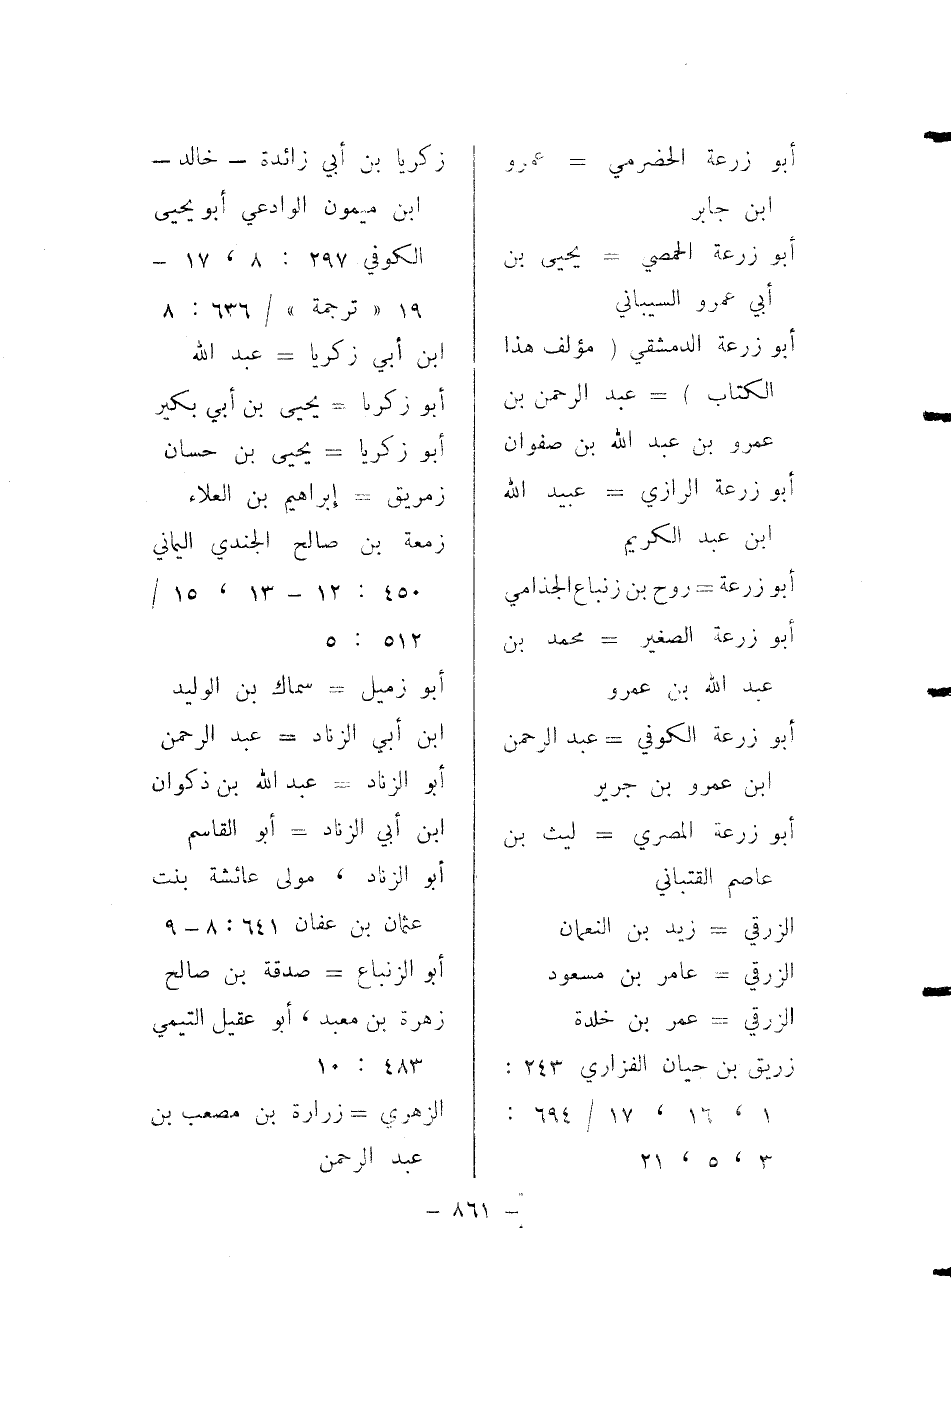 أبو زرعة الحضرمي = عمرو
ابن جابر
أبو زرعة الحمصي = يحيى بن
أبي عمرو السيباني
أبو زرعة الدمشقي ( مؤلف هذا
الكتاب ) = عبد الرحمن بن
عمرو بن عبد الله بن صفوان
أبو زرعة الرازي = عبيد الله
ابن عبد الكريم
أبو زرعة = روح بن زنباع الجذامي
أبو زرعة الصغير = محمد بن
عبد الله بن عمرو
أبو زرعة الكوفي = عبد الرحمن
ابن عمرو بن جرير
أبو زرعة المصري = ليث بن
عاصم القتباني
الزرقي = زيد بن النعمان
الزرقي = عامر بن مسعود
الزرقي = عمر بن خلدة
زريق بن حيان الفزاري ٢٤٣ :
١ ، ١٦ ، ١٧ / ٦٩٤ :
٣ ، ٥ ، ٢١
زكريا بن أبي زائدة – خالد –
ابن ميمون الوادعي أبو يحيى
الكوفي ٢٩٧ : ٨ ، ١٧ –
١٩ « ترجمة » / ٦٣٦ : ٨
ابن أبي زكريا = عبد الله
أبو زكريا = يحيى بن أبي بكير
أبو زكريا = يحيى بن حسان
زمريق = إبراهيم بن العلاء
زمعة بن صالح الجندي اليماني
٤٥٠ : ١٢ – ١٣ ، ١٥ /
٥١٢ : ٥
أبو زميل = سماك بن الوليد
ابن أبي الزناد = عبد الرحمن
أبو الزناد = عبد الله بن ذكوان
ابن أبي الزناد = أبو القاسم
أبو الزناد ، مولى عائشة بنت
عثمان بن عفان ٦٤١ : ٨ – ٩
أبو الزنباع = صدقة بن صالح
زهرة بن معبد ، أبو عقيل التيمي
٤٨٣ : ١٠
الزهري = زرارة بن مصعب بن
عبد الرحمن
– ٨٦١ –